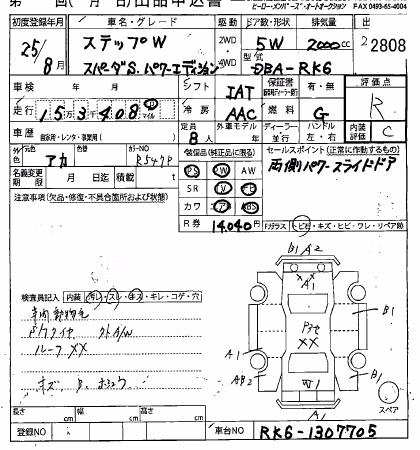 ヒーロー・メンバーズ・オートオークション FAX 0493-65-4004
初度登録年月 車名・グレード 駆動 ドア数・形状 排気量
25/8月 ステップW 2WD 4WD 5W 2000cc 2808
スパーダS パワーエディション 型式 DBA-RK6
車検 年 月 シフト IAT 保証書 有・無 評価点 R
走行 153408 マイル 冷房 AAC 燃料 G 内装評価 C
車歴 自家用・レンタ・事業用( ) 定員 8人 外車モデル ディーラー 並行 ハンドル 左・右
外色 元色 アカ カラーNO R547P 装備品(純正品に限る) セールスポイント(正常に作動するもの)
名義変更期限 月 日迄 積載 t PS PW AW 両側パワースライドドア
注意事項(欠品・修復・不具合箇所および状態) SR
カワ ABS
R券 14,040円 Fガラス トビ石・キズ・ヒビ・ワレ・リペア跡
B1 A2
A1
検査員記入 内装 汚レ・スレ・キズ・キレ・コゲ・穴
B1
××
ルーフ ××
A1
AB2 B1
W1
スペア
A1
長さ cm 幅 cm 高さ cm
登録NO 車台NO RK6-1307705